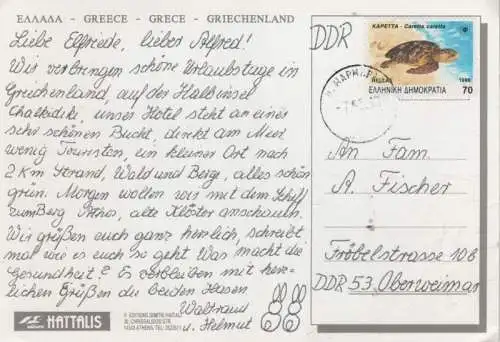 ΕΛΛΑΔΑ - GREECE - GRECE - GRIECHENLAND
Liebe Elfriede, lieber Alfred!
Wir verbringen schöne Urlaubstage in
Griechenland, auf der Halbinsel
Chalkidiki, unser Hotel steht an einer
sehr schönen Bucht, direkt am Meer
wenig Touristen, ein kleiner Ort nach
2 Km Strand, Wald und Berge, alles schön
grün. Morgen wollen wir mit dem Schiff
zum Berg Athos, alte Klöster anschauen.
Wir grüßen euch ganz herzlich, schreibt
mal wie es euch so geht. Was macht die
Gesundheit? Es verbleiben mit herz-
lichen Grüßen die beiden Hasen
Waltraud
u. Helmut
HATTALIS
© EDITIONS DIMITRI HAITALIS
14343 ATHENS
DDR
ΚΑΡΕΤΤΑ - Caretta caretta
HELLAS
1990
ΕΛΛΗΝΙΚΗ ΔΗΜΟΚΡΑΤΙΑ
70
An Fam.
A. Fischer
Fröbelstrasse 106
DDR 53 Oberweimar